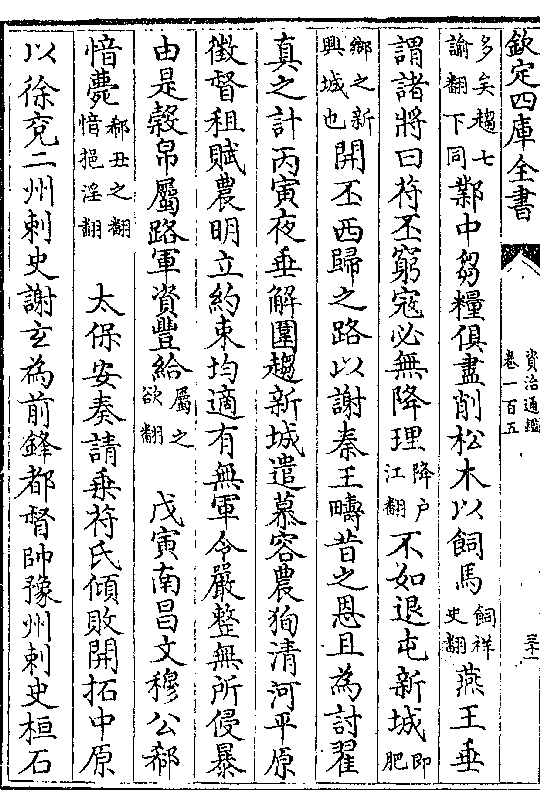 欽定四庫全書
資治通鑑
卷一百五
三十一
多矣趨七諭翻下同鄴中芻糧俱盡削松木以飼馬飼祥史翻燕王垂
謂諸將曰苻丕窮寇必無降理降户江翻不如退屯新城即肥
鄉之新興城也開丕西歸之路以謝秦王疇昔之恩且為討翟
真之計丙寅夜垂解圍趨新城遣慕容農狥清河平原
徵督租賦農明立約束均適有無軍令嚴整無所侵暴
由是穀帛屬路軍資豐給屬之欲翻 戊寅南昌文穆公郗
愔薨郗丑之翻愔挹淫翻 太保安奏請乗苻氏傾敗開拓中原
以徐兖二州刺史謝玄為前鋒都督帥豫州刺史桓石